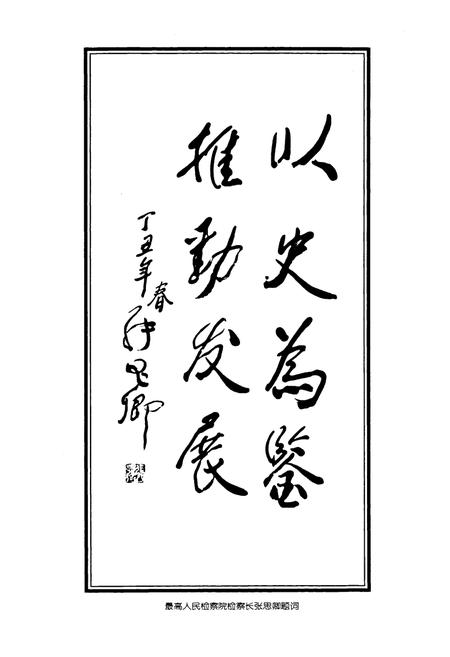 以史為鑒
推動发展
丁丑年春
张思卿
最高人民检察院检察长张思卿题词